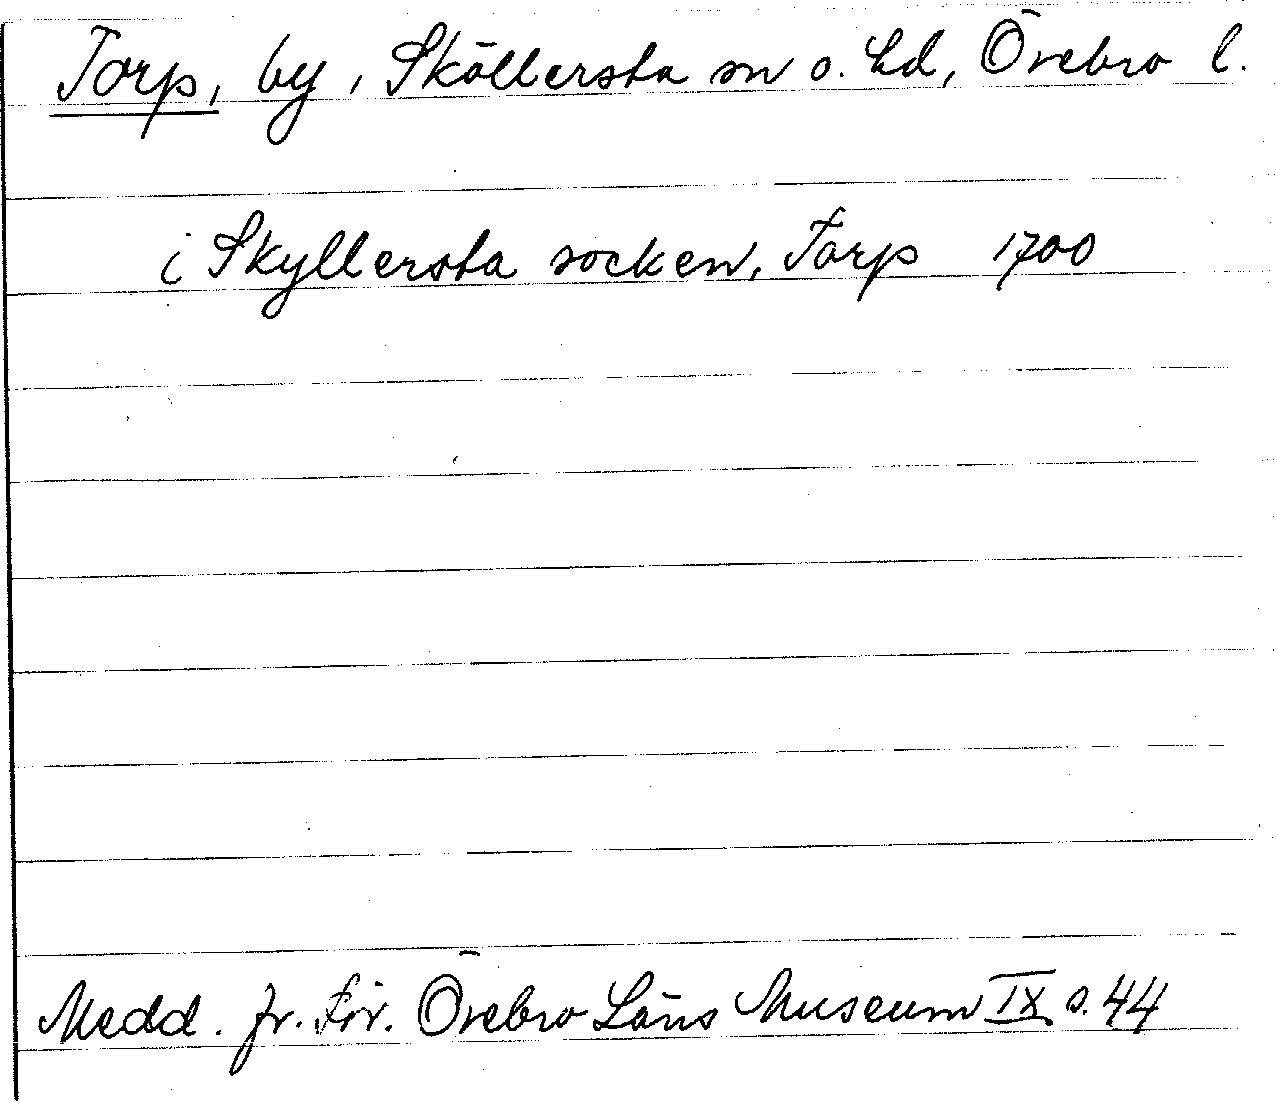 Torp, by, Sköllersta sn o. hd, Örebro l.
i Skyllersta socken, Torp 1700
Medd. fr. För. Örebro Läns Museum IX s. 44